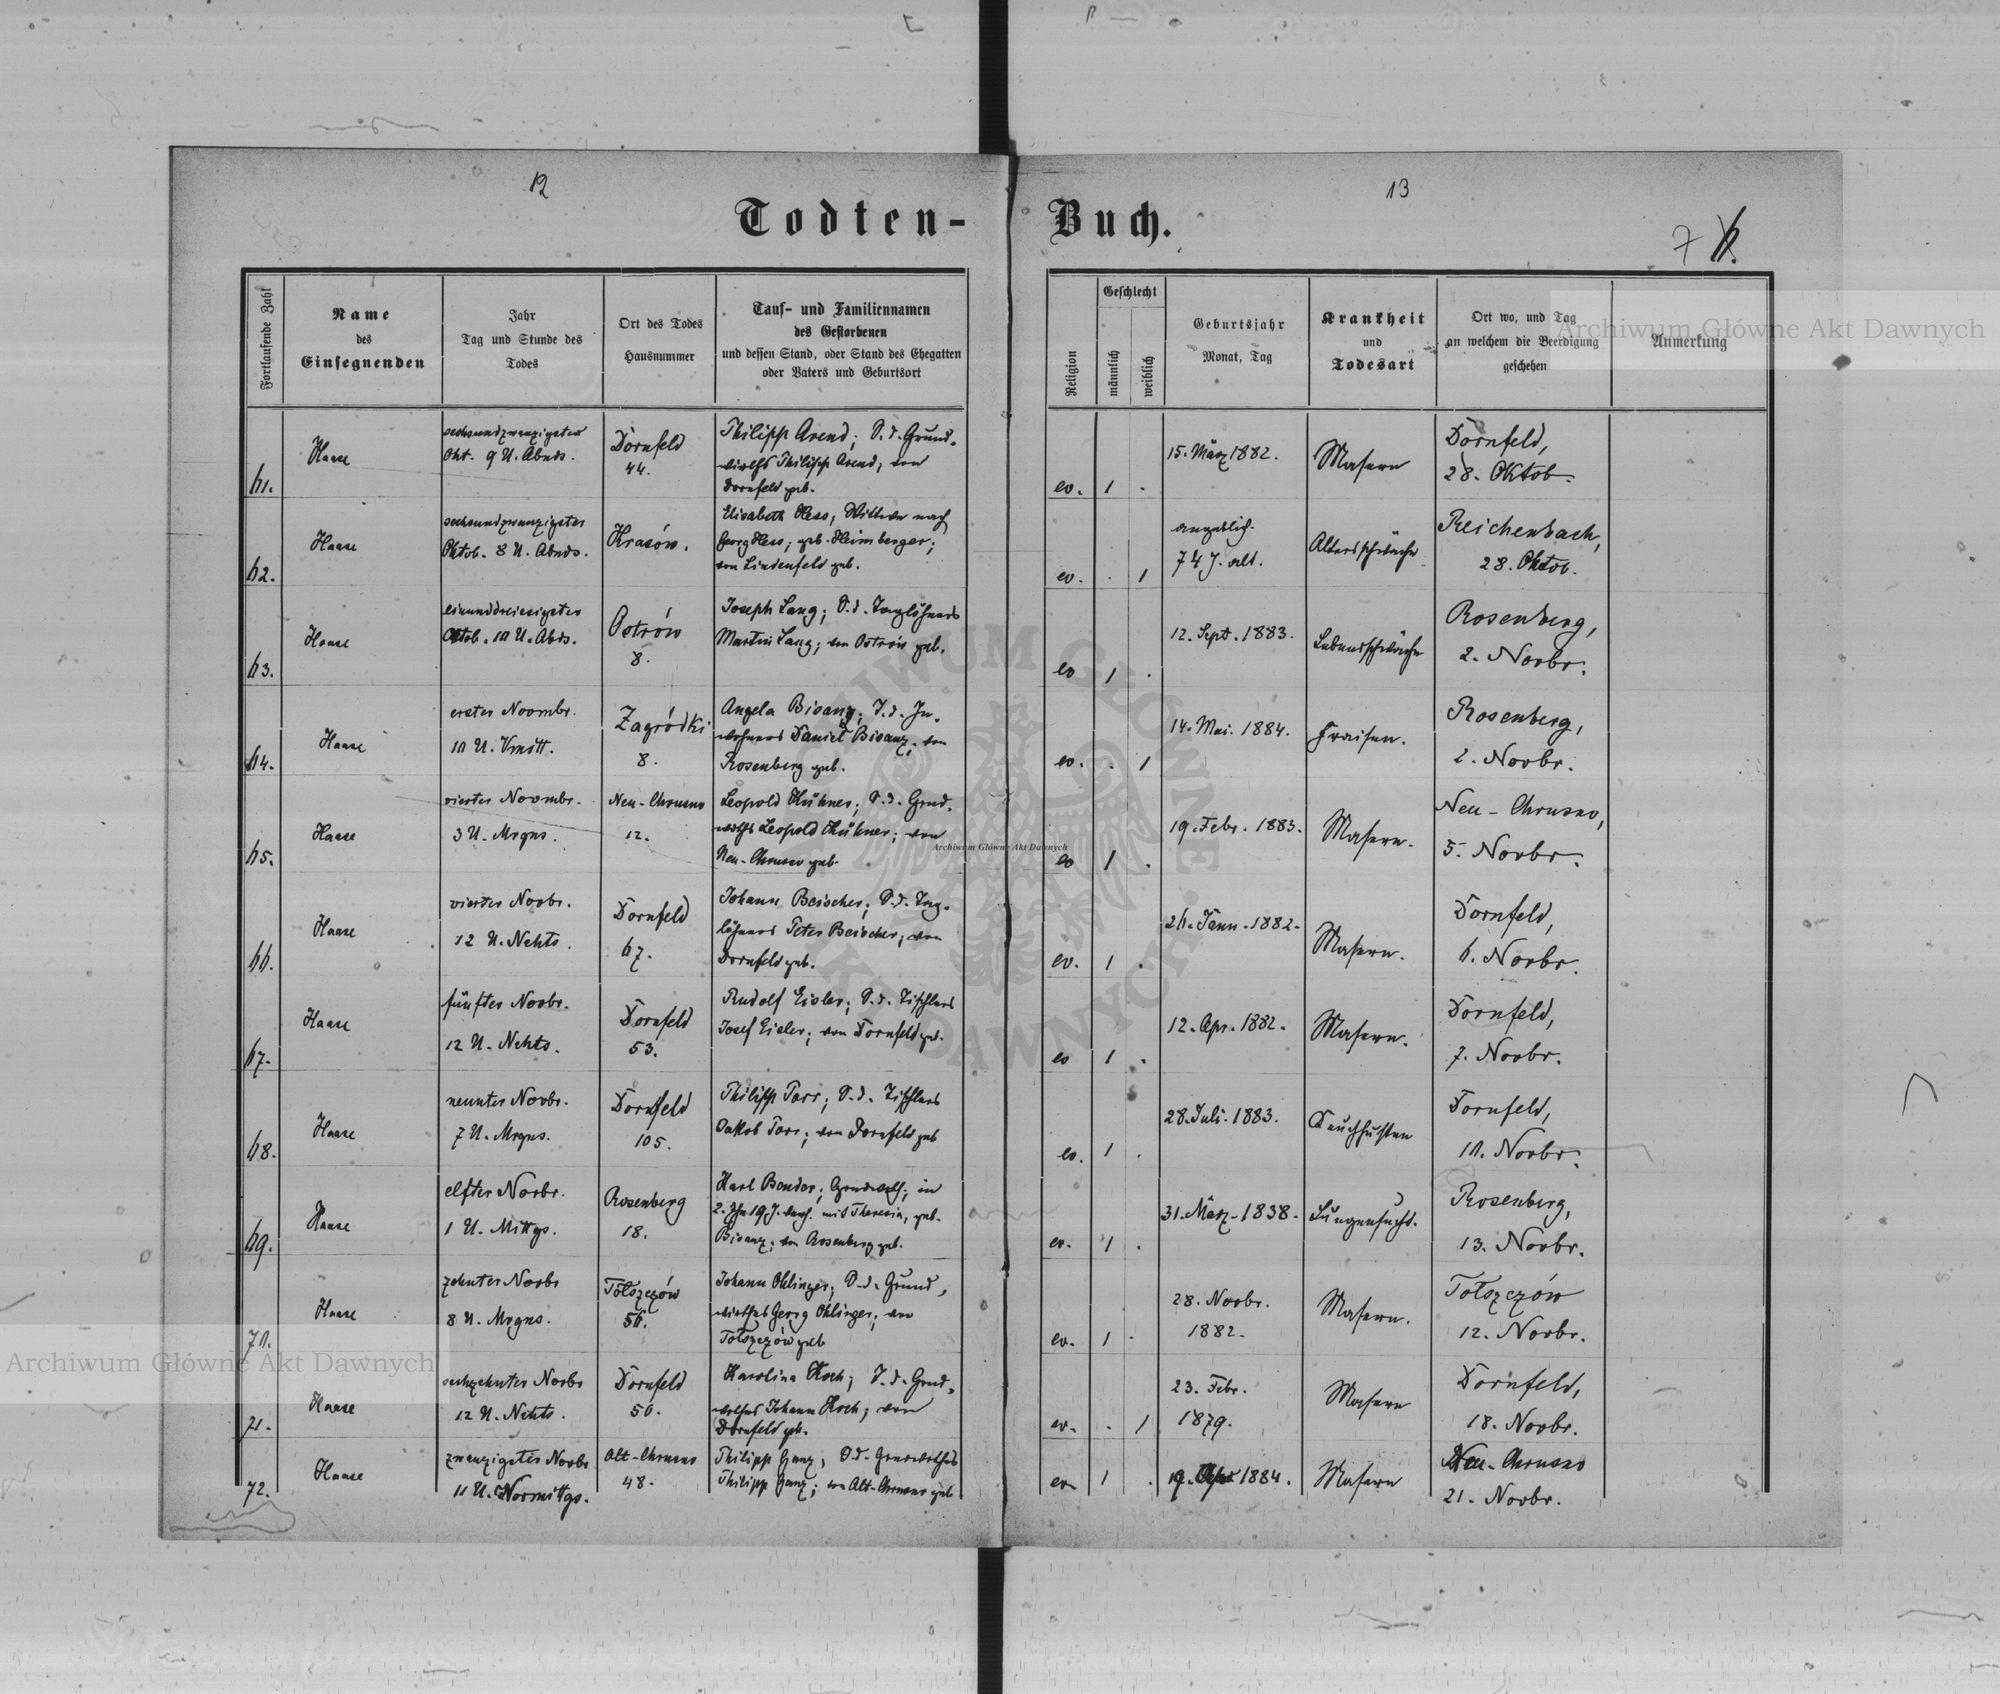 12
13
Todten-Buch.
7
Fortlaufende Zahl
Name
des
Einsegnenden
Jahr
Tag und Stunde des
Todes
Ort des Todes
Hausnummer
Tauf- und Familiennamen
des Gestorbenen
und dessen Stand, oder Stand des Ehegatten
oder Vaters und Geburtsort
Religion
Geschlecht
männlich
weiblich
Geburtsjahr
Monat, Tag
Krankheit
und
Todesart
Ort wo, und Tag
an welchem die Beerdigung
geschehen
Anmerkung
61.
Haase
sechsundzwanzigster
Okt. 9 U. Abnds.
Dornfeld
44.
Philipp Arend; S. d. Grund-
wirths Philipp Arend; von
Dornfeld geb.
ev. 1 .
15. März 1882.
Masern
Dornfeld,
28. Oktob.
62.
Haase
sechsundzwanzigster
Oktob. 8 U. Abnds.
Krasów.
Elisabeth Hess, Wittwe nach
Georg Hess; geb. Heimberger;
von Lindenfeld geb.
ev. . 1
angeblich
74 J. alt.
Altersschwäche
Reichenbach,
28. Oktob.
63.
Haase
einunddreissigster
Oktob. 10 U. Abds.
Ostrów
8.
Joseph Lang; S. d. Taglöhners
Martin Lang; von Ostrów geb.
ev 1 .
12. Sept. 1883.
Lebensschwäche
Rosenberg,
2. Novbr.
64.
Haase
erster Novmbr.
10 U. Vrmitt.
Zagródki
8.
Angela Bisanz; T. d. In-
wohners Daniel Bisanz; von
Rosenberg geb.
ev. . 1
14. Mai. 1884.
Fraisen.
Rosenberg,
2. Novbr.
65.
Haase
vierter Novmbr.
3 U. Mrgns.
Neu-Chrusno
12.
Leopold Hühner; S. d. Grnd-
wirths Leopold Hühner; von
Neu-Chrusno geb.
ev 1 .
19. Febr. 1883.
Masern.
Neu-Chrusno,
5. Novbr.
66.
Haase
vierter Novbr.
12 U. Nchts.
Dornfeld
67.
Johann Beischer; S. d. Tag-
löhners Peter Beischer; von
Dornfeld geb.
ev. 1 .
26. Jänn. 1882.
Masern.
Dornfeld,
6. Novbr.
67.
Haase
fünfter Novbr.
12 U. Nchts.
Dornfeld
53.
Rudolf Eisler; S. d. Tischlers
Josef Eisler; von Dornfeld geb.
ev 1 .
12. Apr. 1882.
Masern.
Dornfeld,
7. Novbr.
68.
Haase
neunter Novbr.
7 U. Mrgns.
Dornfeld
105.
Philipp Porr; S. d. Tischlers
Jakob Porr; von Dornfeld geb
ev. 1 .
28. Juli. 1883.
Keuchhusten
Dornfeld,
10. Novbr.
69.
Haase
elfter Novbr.
1 U. Mittgs.
Rosenberg
18.
Karl Bender; Grundwth; in
2. Ehe 19 J. verh. mit Theresia, geb.
Bisanz; von Rosenberg geb.
ev. 1 .
31. März. 1838.
Lungensucht.
Rosenberg,
13. Novbr.
70.
Haase
zehnter Novbr
8 U. Mrgns.
Tołszczów
56.
Johann Ohlinger; S. d. Grund-
wirthes Georg Ohlinger; von
Tołszczów geb
ev. 1 .
28. Novbr.
1882.
Masern.
Tołszczów
12. Novbr.
71.
Haase
sechzehnter Novbr
12 U. Nchts.
Dornfeld
50.
Karolina Koch; T. d. Grnd-
wirthes Johann Koch; von
Dornfeld geb.
ev. . 1
23. Febr.
1879.
Masern
Dornfeld,
18. Novbr.
72.
Haase
zwanzigster Novbr
11 U. Vormittgs.
Alt-Chrusno
48.
Philipp Ganz, S. d. Grundwirthes
Philipp Ganz; von Alt-Chrusno geb
ev. 1 .
1884.
Masern
Neu-Chrusno
21. Novbr.
Archiwum Główne Akt Dawnych
Archiwum Główne Akt Dawnych
Archiwum Główne Akt Dawnych
ARCHIWUM GŁÓWNE AKT DAWNYCH